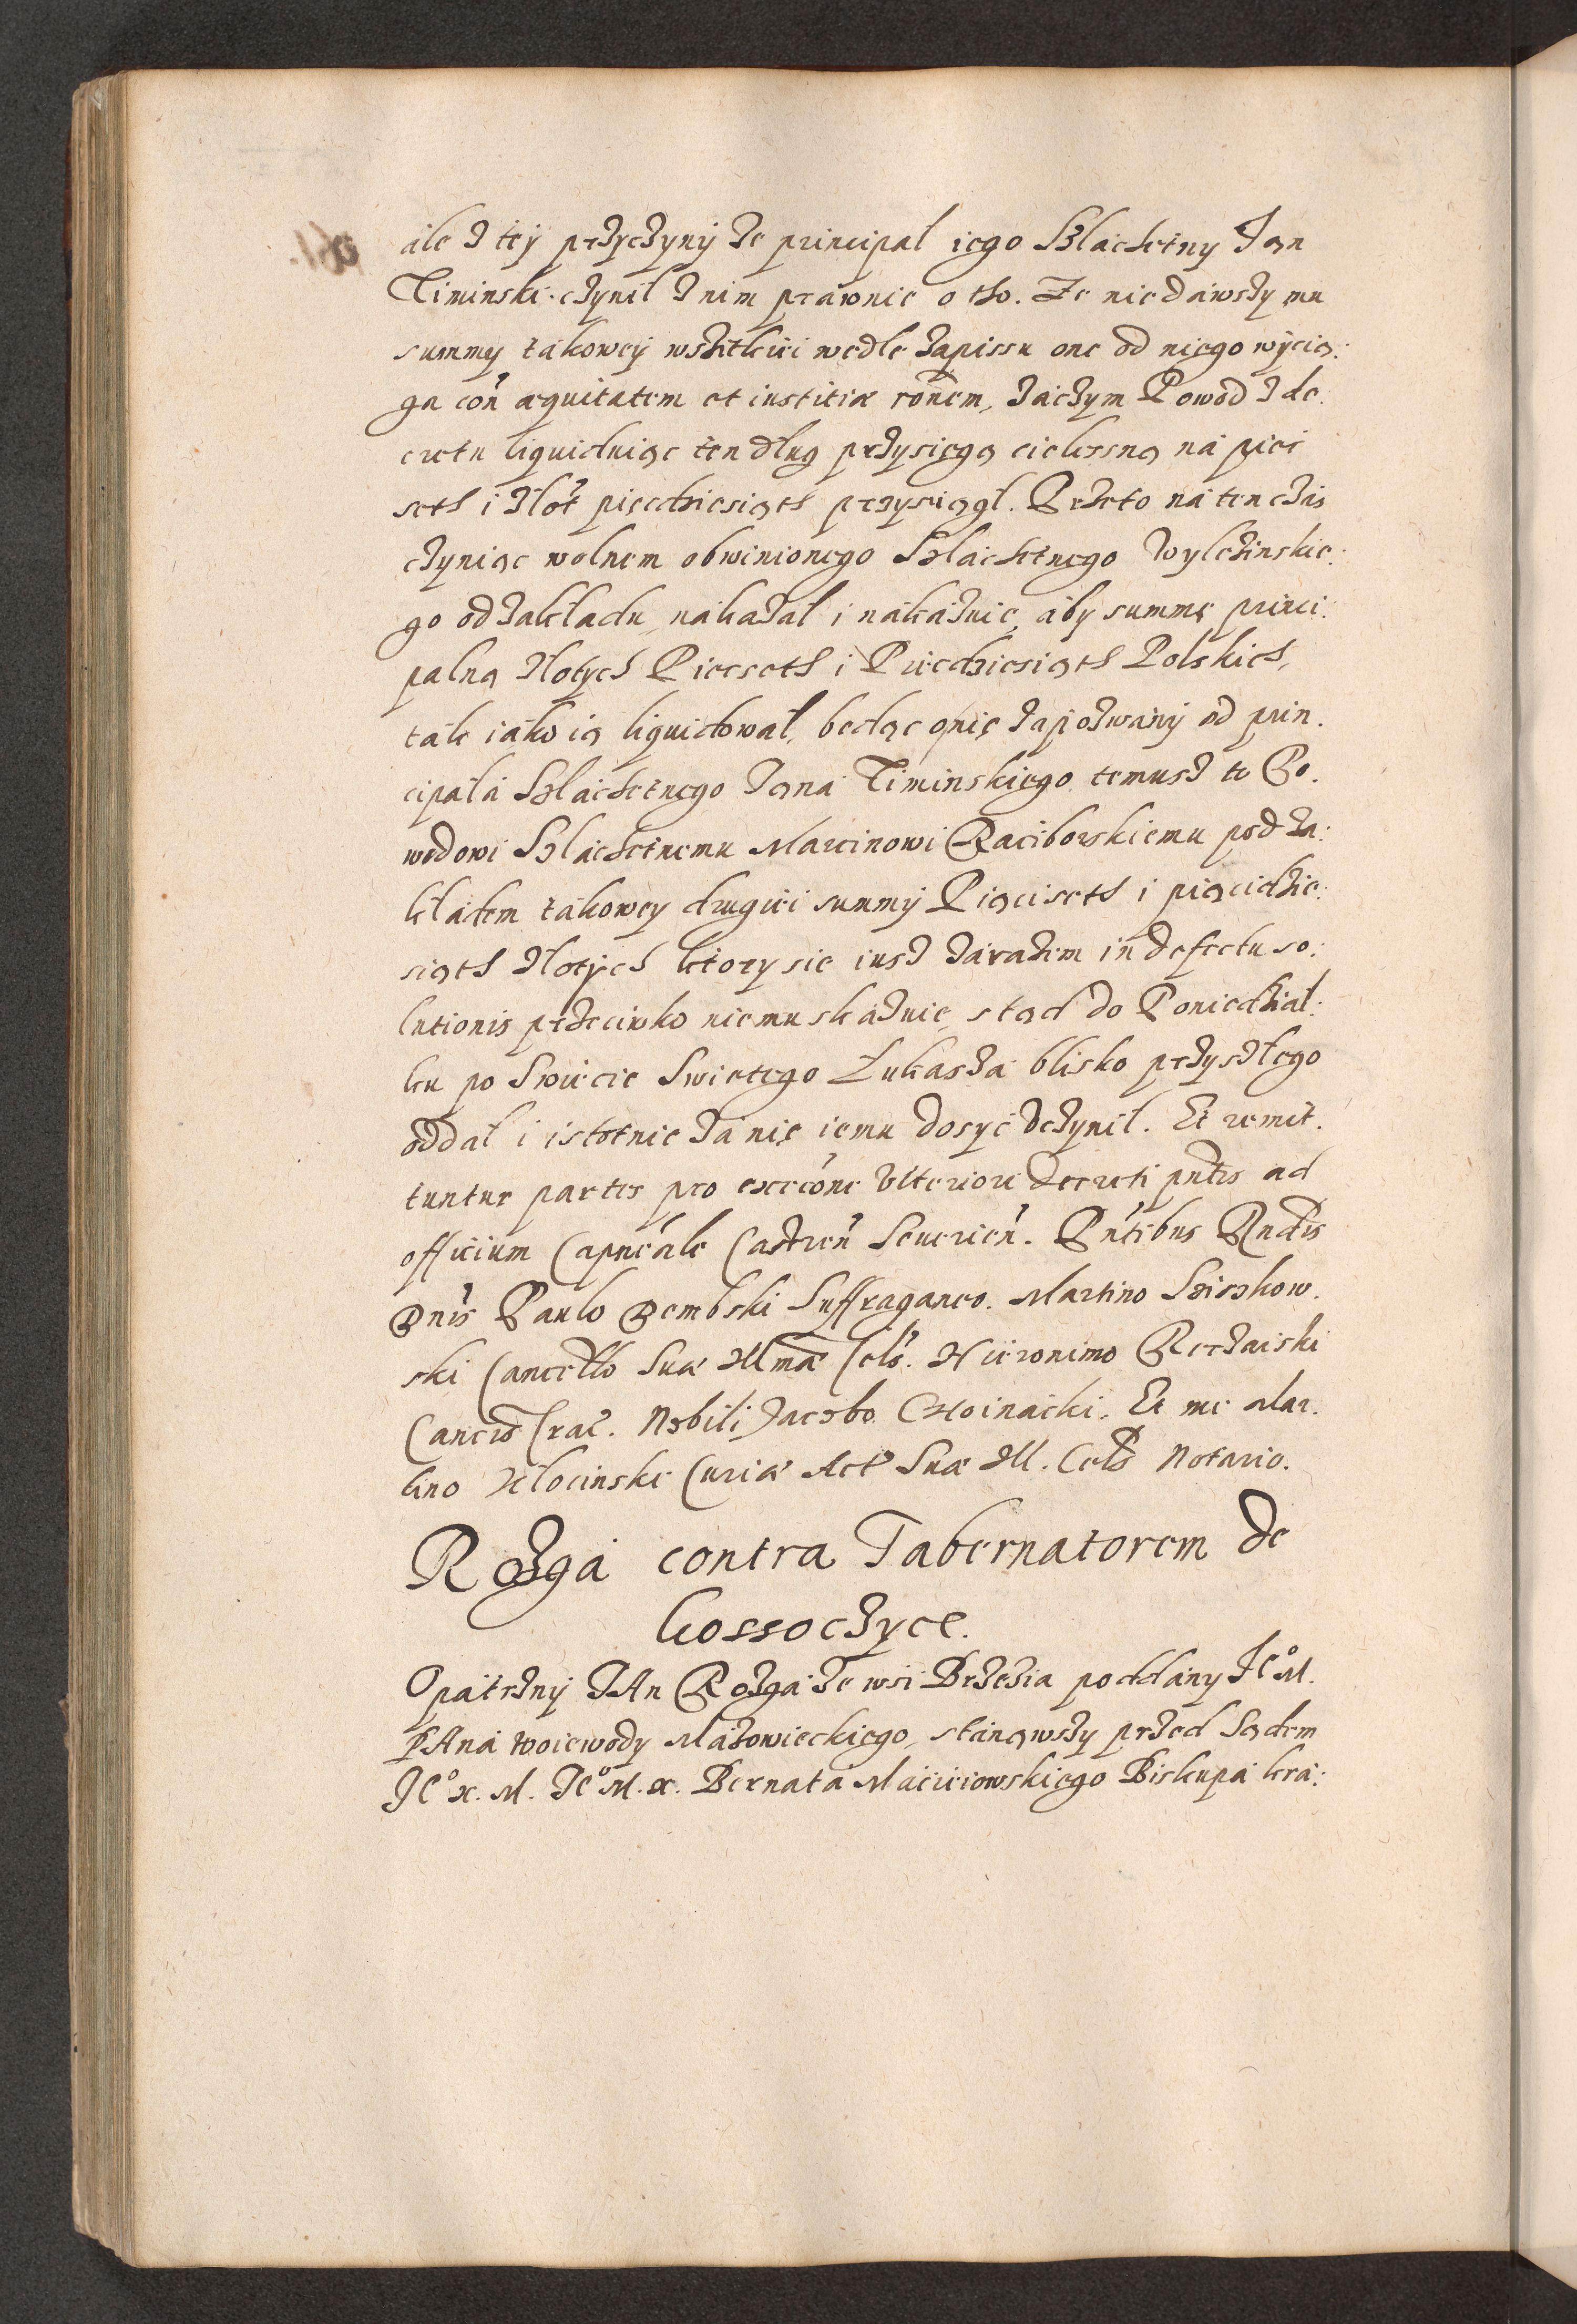 ále z teÿ przyczynÿ że principał iego Szlachetny Ian
Timinski czynił z nim prawnie o tho. Że nie dawszy mu
summy takoweÿ wszitkiei wedle zapissu one od niego wÿcią:
ga con̄ æquitatem et iustitiæ ron̄em, Zaczym Powod z de
cretu liquiduiąc ten dług przysięgą cielesną ná pięć
seth i złot pięcdziesiąth przysiągł. Przeto ná ten czás
czyniąc wolnem obwinionego Szlachetnego Wylczinskie:
go od zakładu, nakazał i nákázuie, áby summę princi:
palną złotych Pięcseth i Pięcdziesiąth Polskich,
ták iáko ią liquidował, będąc o nię zapozwánÿ od prin.
cipałá Szlachetnego Ianá Timinskięgo temusz to Po.
wodowi Szlachetnemu Marcinowi Raciborskiemu pod za:
kładem tákowey drugiei summÿ Piąciseth i piącidzie:
siąth złotÿch ktory sie iusz zarazem in defectu so:
lutionis przeciwko niemu skázuie, stąd do Poniedział:
ku po Swięcie Swiętego Łukaszá blisko przyszłego
oddał i istotnie zá nię iemu dosyć vczynił. Et remit.
tuntur partes pro execōne vlteriori decreti pn̄tis ad
officium Capnēale Castren̄ Seuerien̄. Pn̄tibus Rn̄dis
Dn̄is Paulo Dembski Suffraganeo. Martino Sziszkow.
ski Cancell̄o Suæ Illmæ Cels. Hieronimo Rerzaiski
Canco Crac. Nobili Iacobo Choinacki. Et me Mar.
tino Kłocinski Curiæ Act Suæ Ill. Cels Notario.
Rozgá contra Tabernatorem de
Kossoczyce.
Opátrznÿ IAn Rozgá ze wsi Brzezia poddány Iᵒ M.
PAná woiewody Mázowieckiego, stánąwszy przed Sądem
Iᵒ x. M. Iᵒ M. x. Bernatá Máciiowskięgo Biskupá kra: